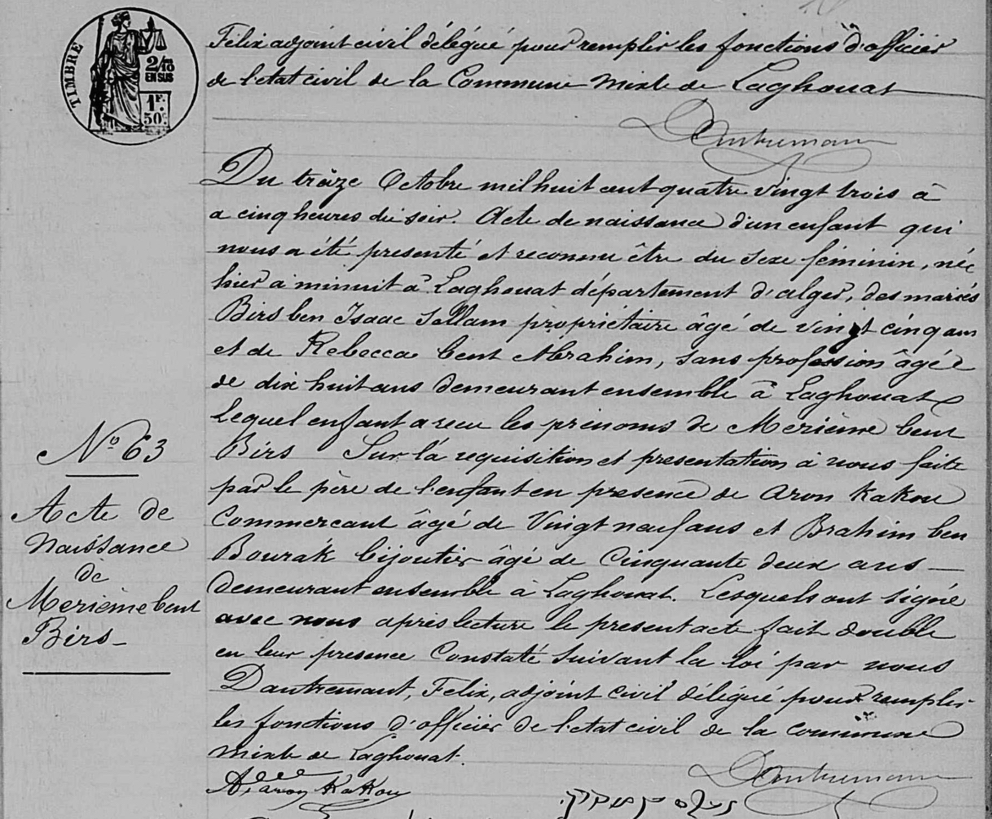 TIMBRE
2/10
EN SUS
1F.
50c.
Felix adjoint civil délégué pour remplir les fonctions d'officier
de l'etat civil de la Commune Mixte de Laghouat
Dantremant
Du treize Octobre mil huit cent quatre vingt trois à
a cinq heures du soir. Acte de naissance d'un enfant qui
nous a été presenté et reconnu être du Sexe féminin, née
hier a minuit à Laghouat département d'alger, des mariés
Birs ben Isaac Sellam propriétaire âgé de vingt cinq ans
et de Rebecca bent Abrahim, sans profession âgée
de dix huit ans demeurant ensemble à Laghouat
Lequel enfant a reçu les prenoms de Merième bent
Birs Sur la requisition et presentation à nous faite
par le père de l'enfant en presence de Aron Kakou
Commercant âgé de Vingt neuf ans et Brahim ben
Bourák bijoutier âgé de Cinquante deux ans
demeurant ensemble à Laghouat. Lesquels ont signé
avec nous après lecture le present acte fait double
en leur présence Constaté Suivant la loi par nous
Dantremant, Felix, adjoint civil délégué pour remplir
les fonctions d'officier de l'etat civil de la commune
mixte de Laghouat.
Aaron Kakou
Dantremant
No 63
Acte de
Naissance
de
Merième bent
Birs